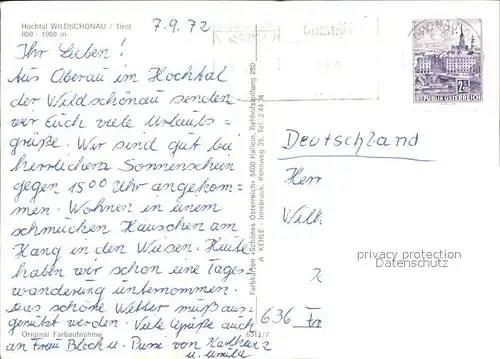 Hochtal WILDSCHÖNAU / Tirol
800 - 1900 m
7.9.72
Ihr Lieben!
Aus Oberau im Hochtal
der Wildschönau senden
wir Euch viele Urlaubs=
grüße. Wir sind gut bei
herrlichem Sonnenschein
gegen 15⁰⁰ Uhr angekom=
men. Wohnen in einem
schmucken Häuschen am
Hang in den Wiesen. Heute
haben wir schon eine Tages=
wanderung unternommen.
Das schöne Wetter muß aus=
genützt werden. Viele Grüße auch
an Frau Bloch u. Pussi von Karlheinz
u.
Original Farbaufnahme
6311/7
Farbkarten »Schönes Österreich« 5400 Hallein, Bahnhofstraße 280
A. KEHLE - Innsbruck, Rennweg 39, Tel. 2 44 34
REPUBLIK ÖSTERREICH
Deutschland
Herr
Wilh
privacy protection
www.akpool.de
636